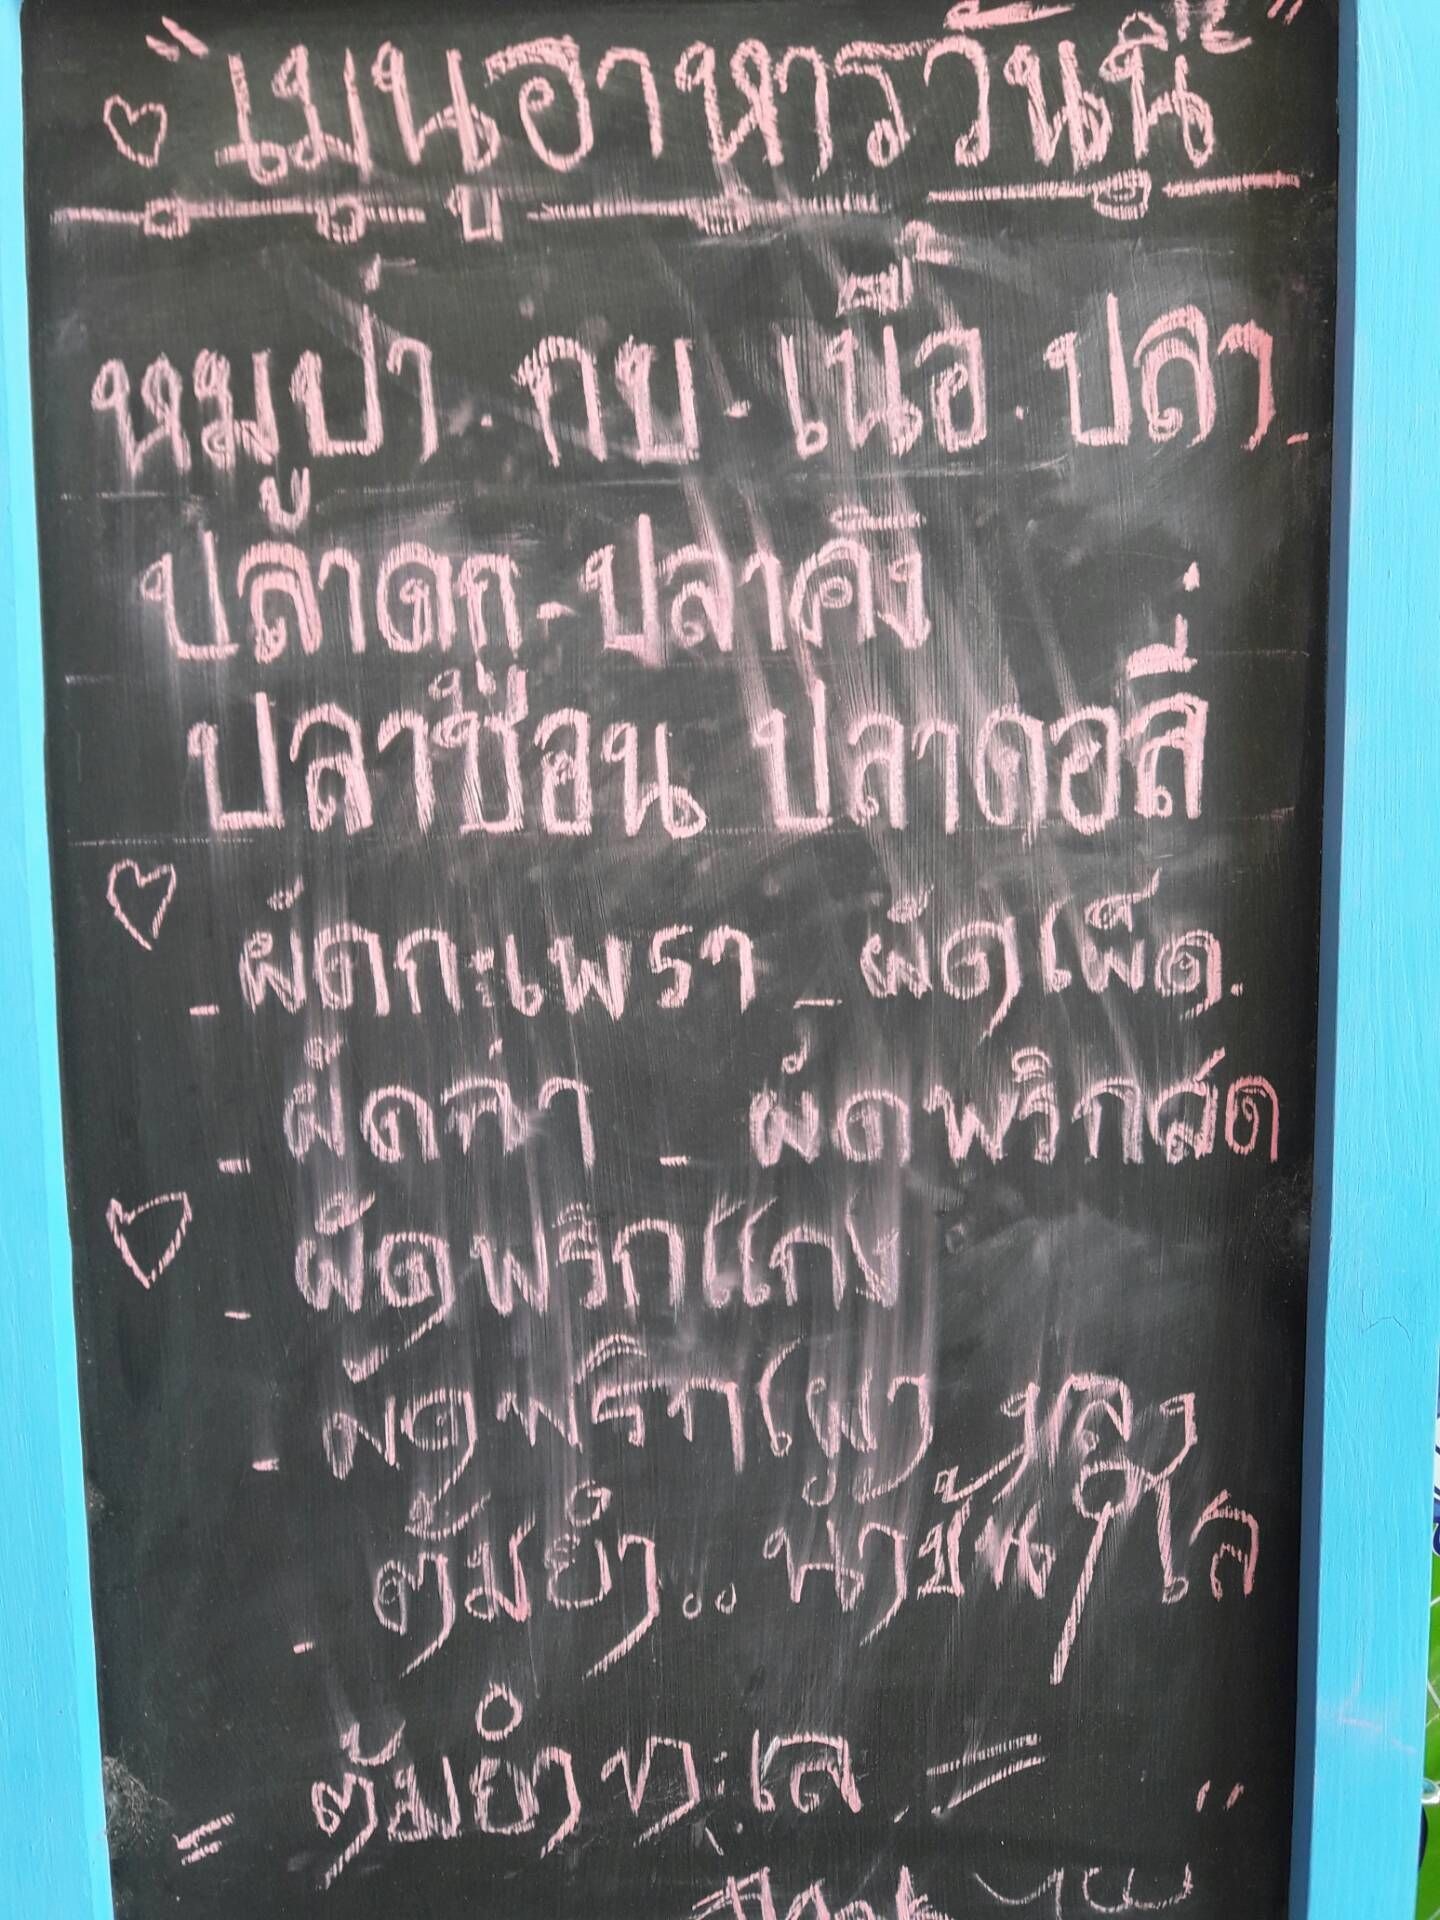 "เมนูอาหารวันนี้"
หมูป่า. กบ - เนื้อ. ปลา -
ปลาดุก - ปลาคัง
ปลาช่อน ปลาดอลี่
- ผัดกะเพรา - ผัดเผ็ด.
- ผัดฉ่า - ผัดพริกสด
- ผัดพริกแกง
- ผัดพริกเผา
- ต้มยำ.. น้ำข้น, ใส
= ต้มยำทะเล =